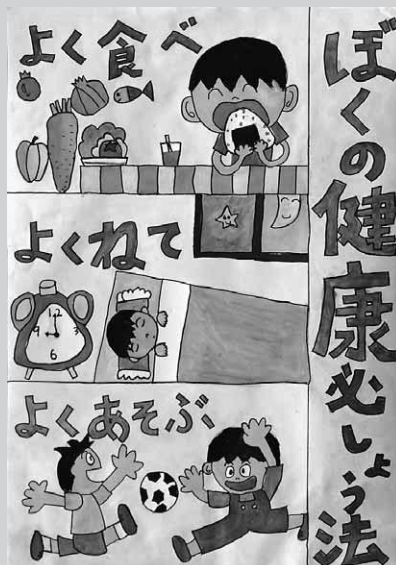 ぼくの健康必しょう法
よく食べ
よくねて
12
9 3
6
よくあそぶ